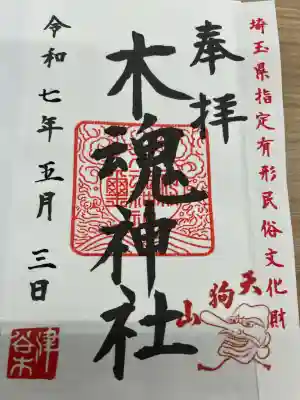 埼玉県指定有形民俗文化財
奉拝
木魂神社
令和七年五月三日
天狗山
津谷木